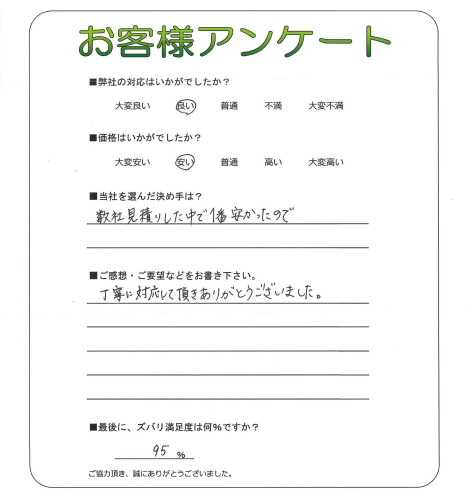 お客様アンケート
■弊社の対応はいかがでしたか？
大変良い 良い 普通 不満 大変不満
■価格はいかがでしたか？
大変安い 安い 普通 高い 大変高い
■当社を選んだ決め手は？
数社見積りした中で1番安かったので
■ご感想・ご要望などをお書き下さい。
丁寧に対応して頂きありがとうございました。
■最後に、ズバリ満足度は何％ですか？
95 ％
ご協力頂き、誠にありがとうございました。